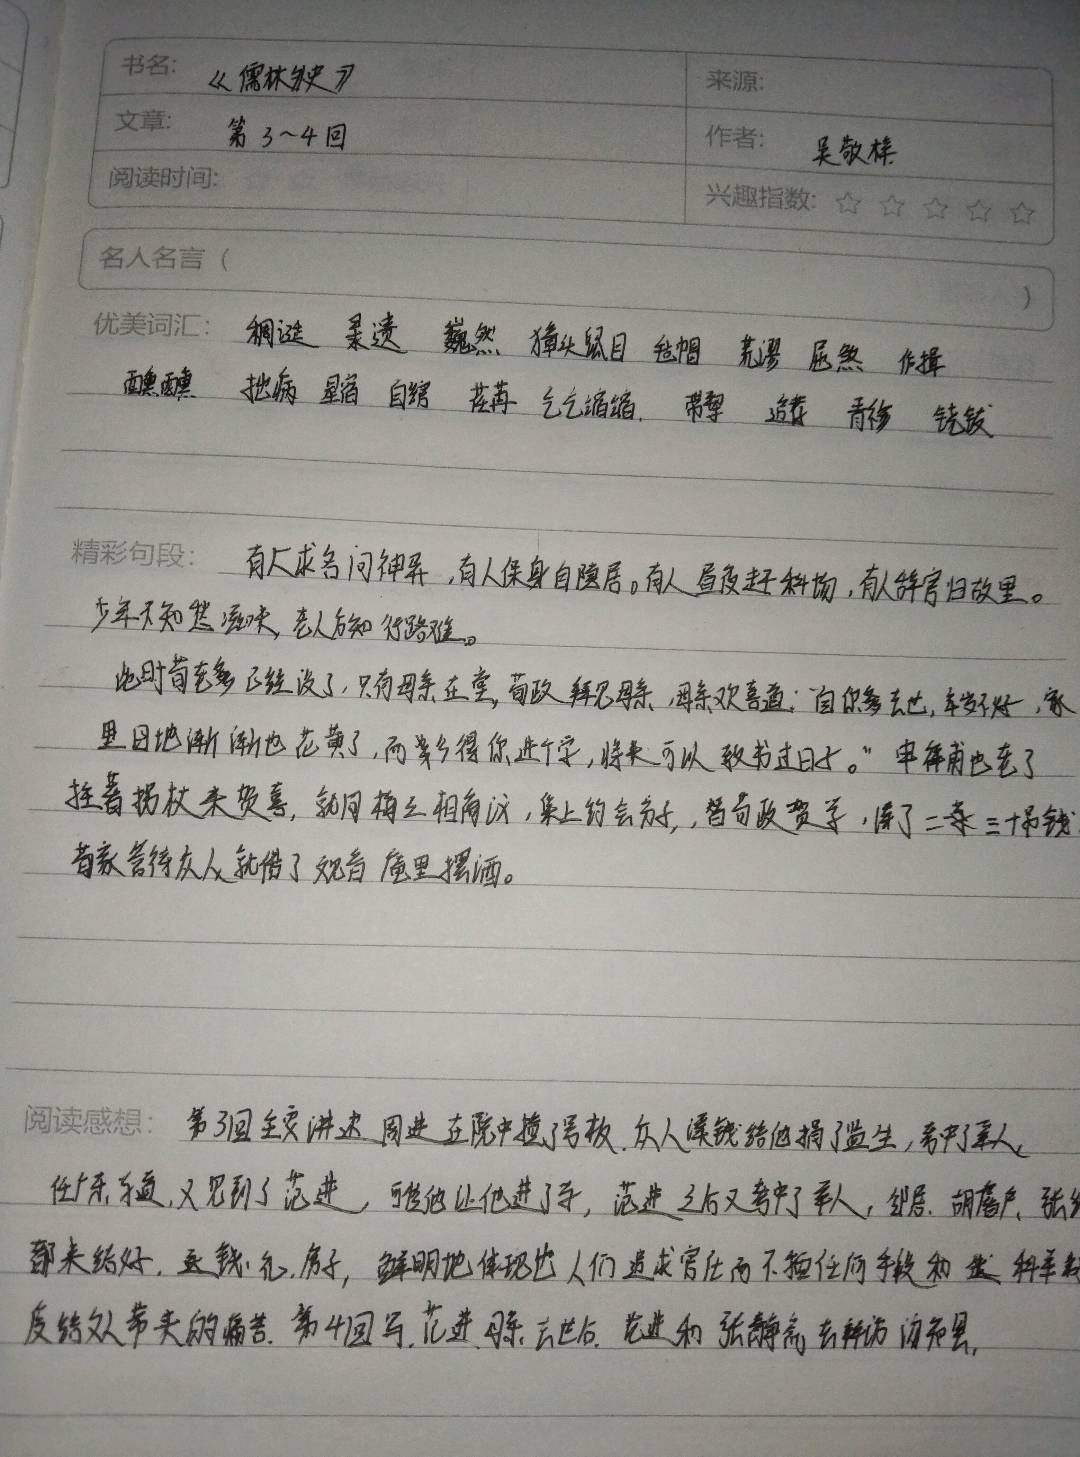 书名: 《儒林外史》 来源:
文章: 第3~4回 作者: 吴敬梓
阅读时间: 兴趣指数:
名人名言 ( )
优美词汇: 稠 巍然 獐头鼠目 毡帽 荒谬 屈煞 作揖
醺醺 拙病 星宿 自缢 荏苒 乞乞缩缩 带挈 追荐 青衫 铙钹
精彩句段: 有人求名问神异,有人保身自隐居。有人昼夜赶科场,有人辞官归故里。
少年不知愁滋味,老人方知行路难。
此时荀老爹已经没了,只有母亲在堂,荀玫拜见母亲,母亲欢喜道:"自你爹去世,年岁不好,家
里田地渐渐也花费了,而今得你进个学,将来可以教书过日子。"申祥甫也老了
拄着拐杖来贺喜,就同梅三相商议,集上约会分子,替荀政贺学,凑了二三十吊钱
荀家管待众人,就借了观音庵里摆酒。
阅读感想: 第3回主要讲述 周进在院中撞了号板,众人凑钱给他捐了监生,考中了举人,
任广东 道,又见到了范进,可怜他让他进了学,范进之后又考中了举人,邻居、胡屠户、张
都来结好,送钱、礼、房子,鲜明地体现出人们追求官仕而不择任何手段和 科举
度给人带来的痛苦.第4回写,范进母亲去世后,范进和张静斋去拜访汤知县,